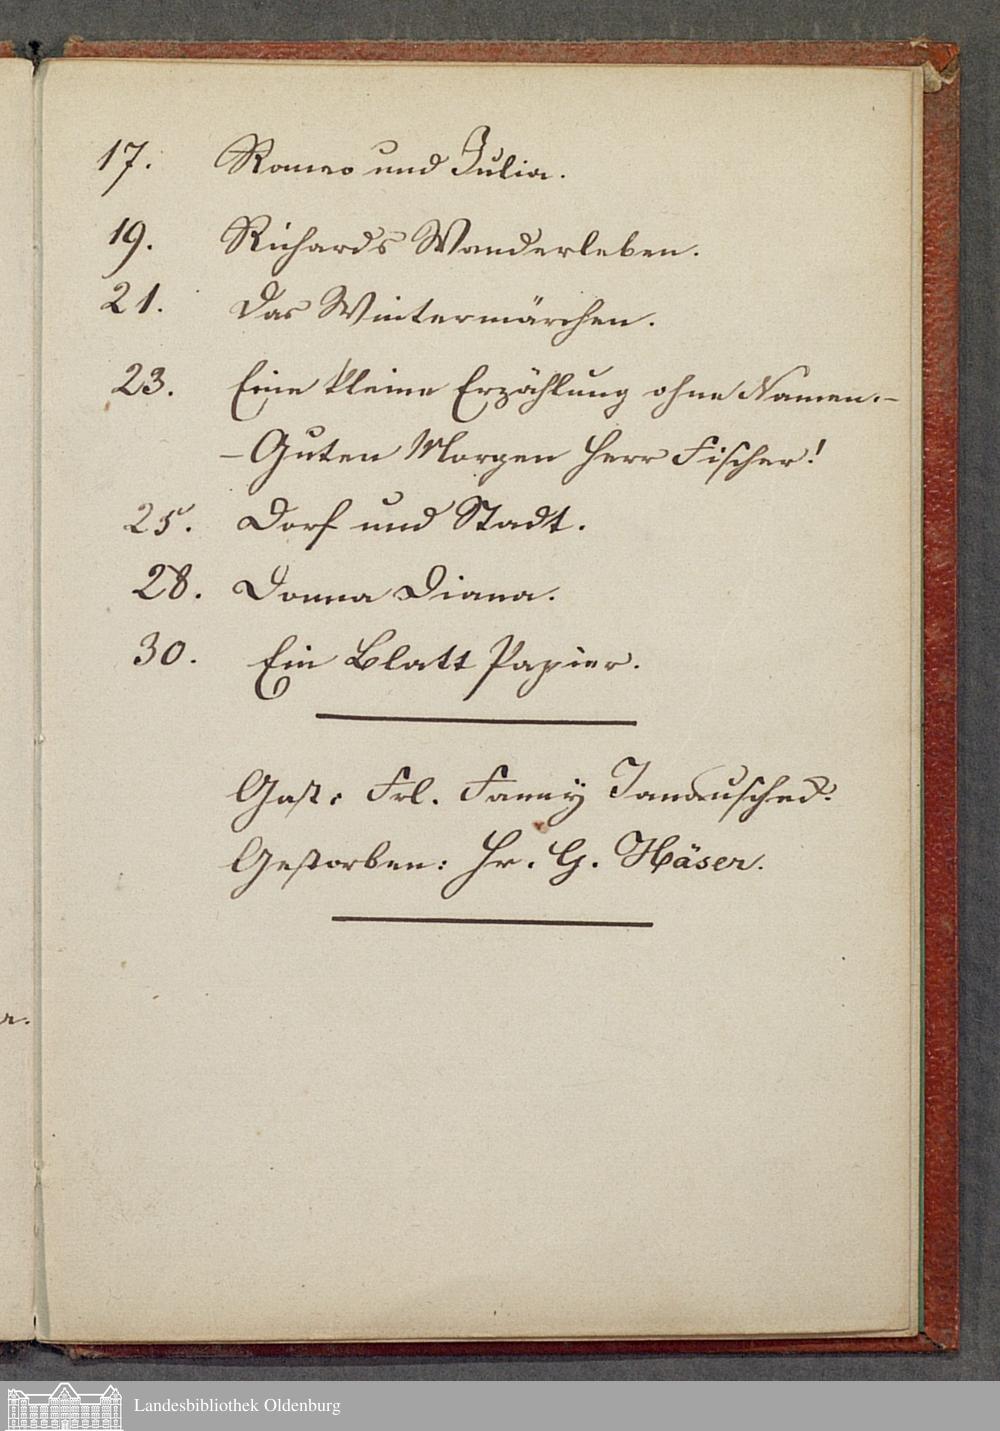 17. Romeo und Julia.
19. Richards Wanderleben.
21. Das Wintermärchen.
23. Eine kleine Erzählung ohne Namen. –
– Guten Morgen Herr Fischer!
25. Dorf und Stadt.
28. Donna Diana.
30. Ein Blatt Papier.
Gast. Frl. Fanny Janauscheck.
Gestorben: Hr. G. Häser.
r.
Landesbibliothek Oldenburg